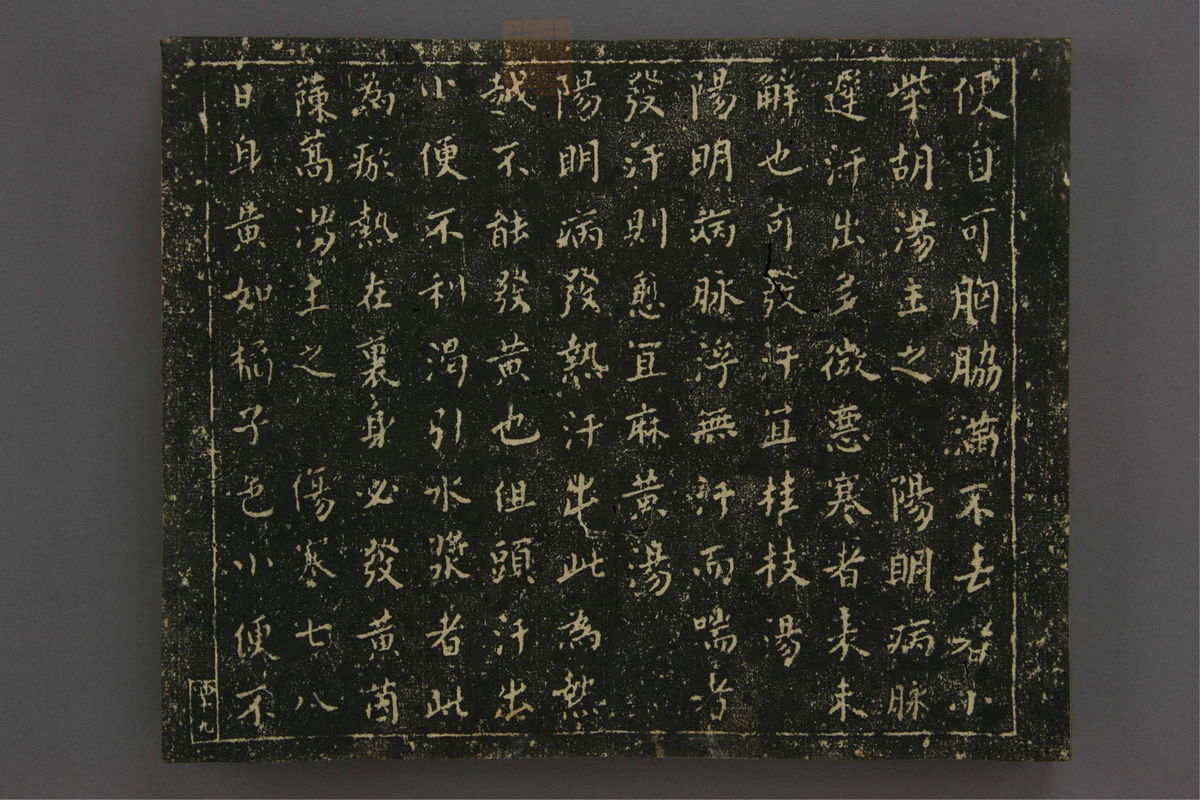 便自可胸脇滿不去者小
柴胡湯主之 陽明病脉
遲汗出多微惡寒者表未
解也可發汗宜桂枝湯
陽明病脉浮無汗而喘者
發汗則愈宜麻黄湯
陽明病發熱汗出此為熱
越不能發黄也但頭汗出
小便不利渴引水漿者此
為瘀熱在裏身必發黄茵
蔯蒿湯主之 傷寒七八
日身黄如橘子色小便不